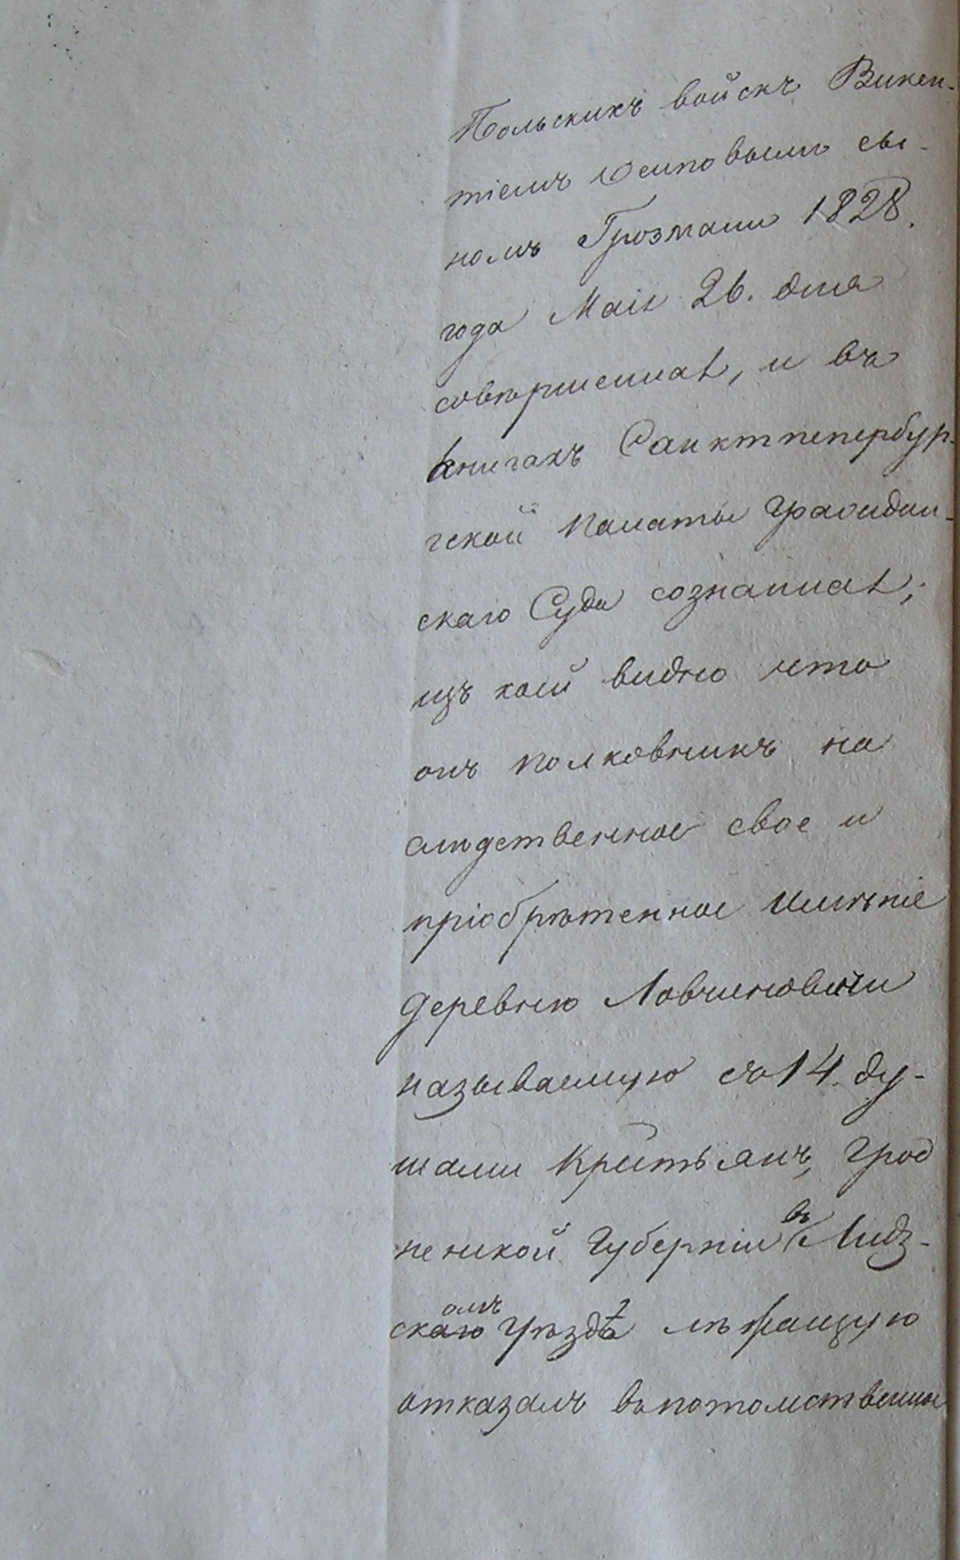 Польскихъ войскъ Викен-
тіемъ Осиповымъ сы-
номъ Грозмани 1828.
года Маія 26. дня
совершенная, и въ
книгахъ Санктпетербур-
гской палаты Граждан-
скаго Суда сознанная;
изъ коей видно что
онъ полковникъ на
слѣдственное свое и
пріобрѣтенное имѣніе
деревню Ловчиновичи
называемую со 14. ду-
шами крестьянъ, Грод
ненской Губерніи въ Лидз-
скомъ уѣздѣ лежащую
отказалъ въ потомственное